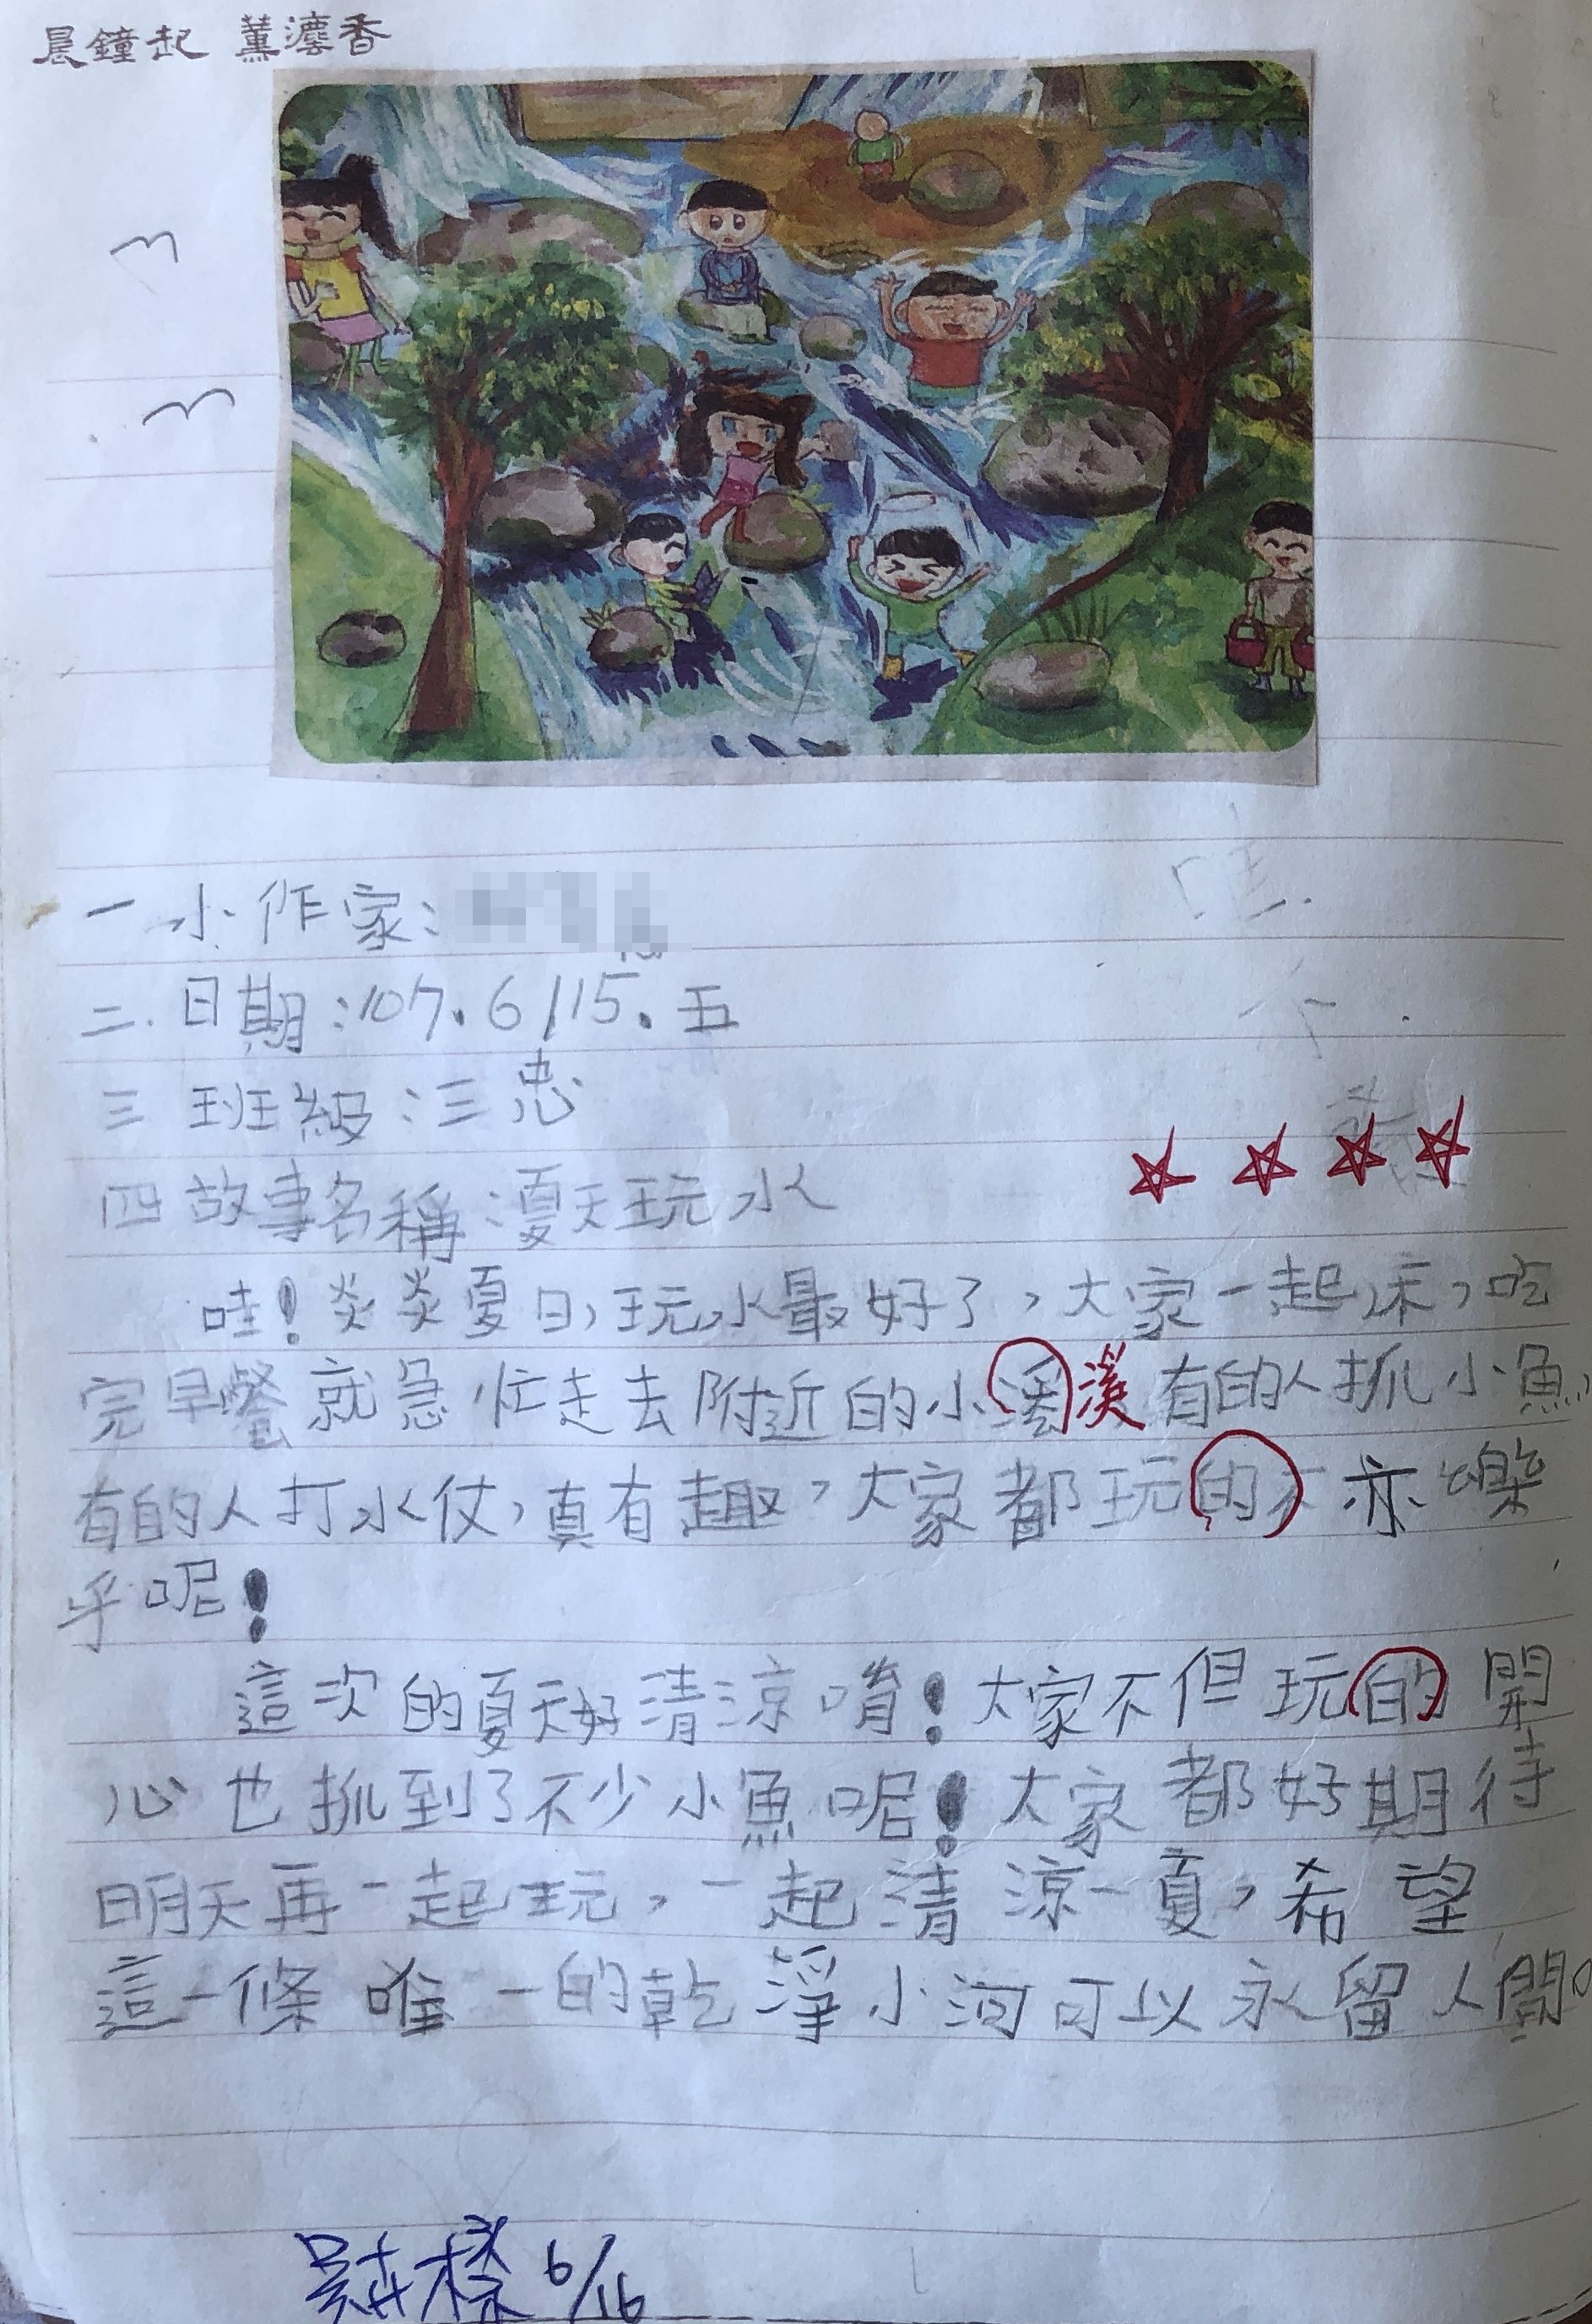 晨鐘起 薰灋香
一小作家:
二.日期:107.6/15.五
三班級:三忠
四故事名稱:夏天玩水
哇!炎炎夏日,玩水最好了,大家一起床,吃
完早餐就急忙走去附近的小溪溪有的人抓小魚,
有的人打水仗,真有趣,大家都玩的不亦樂
乎呢!
這次的夏天好清涼唷!大家不但玩的開
心也抓到了不少小魚呢!大家都好期待
明天再一起玩,一起清涼一夏,希望
這一條唯一的乾淨小河可以永留人間。
6/16